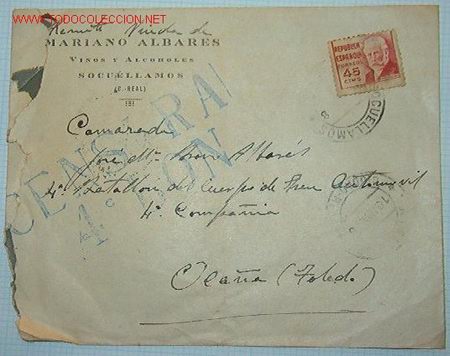 WWW.TODOCOLECCION.NET
Remite Viuda de
MARIANO ALBARES
VINOS Y ALCOHOLES
SOCUÉLLAMOS
(C. REAL)
REPUBLICA
ESPAÑOLA
CORREOS
45
CTMS
SOCUELLAMOS
CENSURA
Camarada
José Mª Albarés
4º Batallon del Cuerpo de Tren Automovil
4ª Compañia
Ocaña (Toledo)